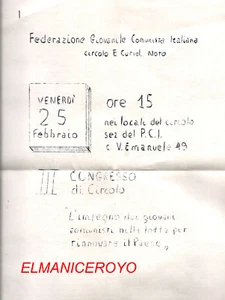 Federazione Giovanile Comunista Italiana
circolo E. Curiel. Noto
VENERDÌ
25
febbraio
ore 15
nei locali del circolo
sez del P.C.I.
c. V. Emanuele 49
III CONGRESSO
di Circolo
"L'impegno dei giovani
comunisti nella lotta per
rinnovare il Paese"
ELMANICEROYO